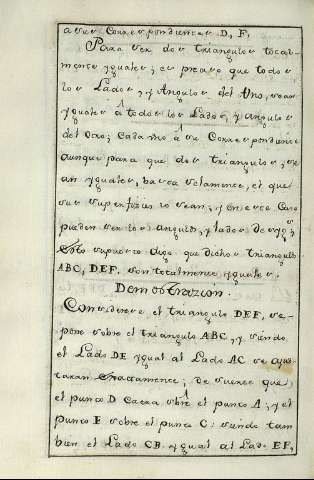 a sus Correspondientes D, F,
Para ser dos triangulos total-
mente yguales, es preciso que todos
los Lados, y Angulos del Uno, sean
yguales â todos los Lados, y angulos
del otro; Cada Uno â su Correspondiente
aunque para que dos triangulos, se-
an yguales, basta solamente, el que
sus superficies lo sean, y en este Caso
pueden ser los angulos, y lados desygs
Esto supuesto digo que dichos triangulos
ABC, DEF. son totalmente yguales.
Demostrazion.
Considerese el triangulo DEF, se-
pone sobre el triangulo ABC, y siendo
el Lado DE ygual al Lado AC se ajus-
taran Exactamente; de suerte que
el punto D Caera sbre el punto A; y el
punto E sobre el punto C: siendo tam
bien el Lado CB ygual al Lado EF,